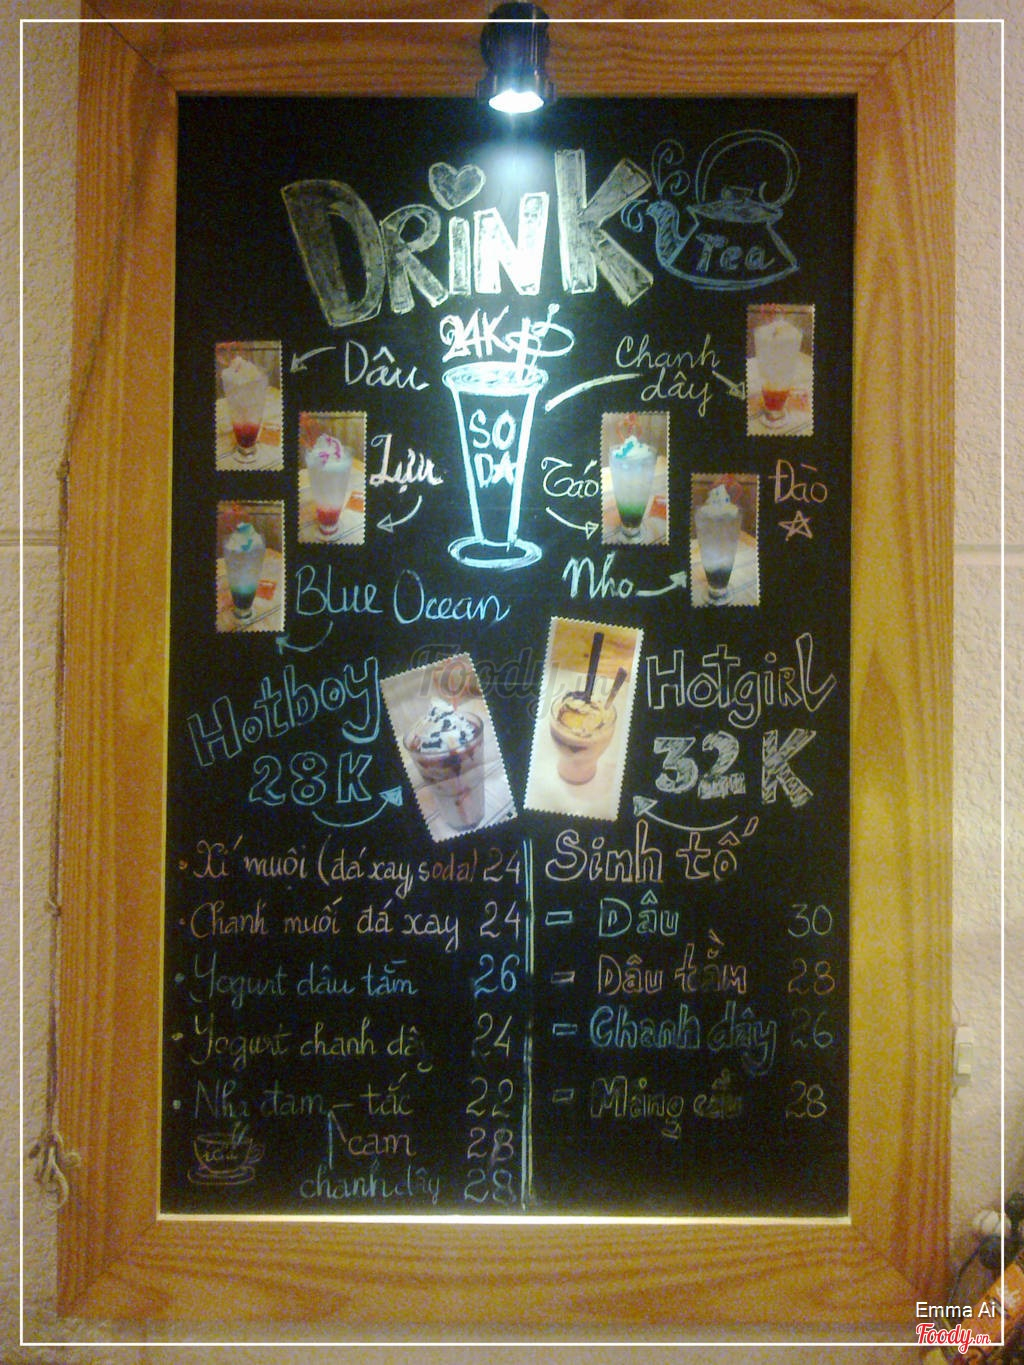 DRiNK
Tea
24K
SO
DA
Dâu
Lựu
Blue Ocean
Chanh
dây
Táo
Đào
Nho
Foody.vn
Hotboy
28K
Hotgirl
32K
Xí muội (đá xay, soda) 24
Chanh muối đá xay 24
Yogurt dâu tằm 26
Yogurt chanh dây 24
Nha đam - tắc 22
cam 28
chanh dây 28
Sinh tố
- Dâu 30
- Dâu tằm 28
- Chanh dây 26
- Mãng cầu 28
Emma Ai
Foody.vn